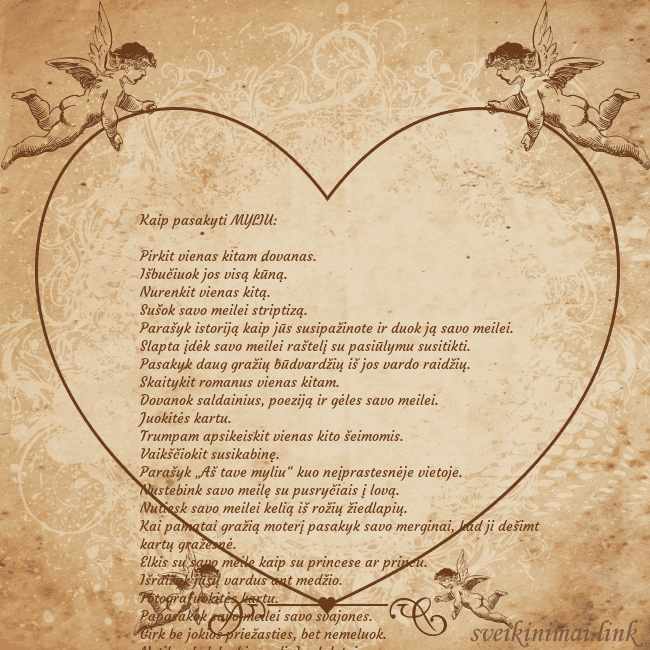 Kaip pasakyti MYLIU:
Pirkit vienas kitam dovanas.
Išbučiuok jos visą kūną.
Nurenkit vienas kitą.
Sušok savo meilei striptizą.
Parašyk istoriją kaip jūs susipažinote ir duok ją savo meilei.
Slapta įdėk savo meilei raštelį su pasiūlymu susitikti.
Pasakyk daug gražių būdvardžių iš jos vardo raidžių.
Skaitykit romanus vienas kitam.
Dovanok saldainius, poeziją ir gėles savo meilei.
Juokitės kartu.
Trumpam apsikeiskit vienas kito šeimomis.
Vaikščiokit susikabinę.
Parašyk „Aš tave myliu“ kuo neįprastesnėje vietoje.
Nustebink savo meilę su pusryčiais į lovą.
Nutiesk savo meilei kelią iš rožių žiedlapių.
Kai pamatai gražią moterį pasakyk savo merginai, kad ji dešimt
kartų gražesnė.
Elkis su savo meile kaip su princese ar princu.
Išraižyk jūsų vardus ant medžio.
Fotografuokitės kartu.
Papasakok savo meilei savo svajones.
Girk be jokios priežasties, bet nemeluok.
sveikinimai.link